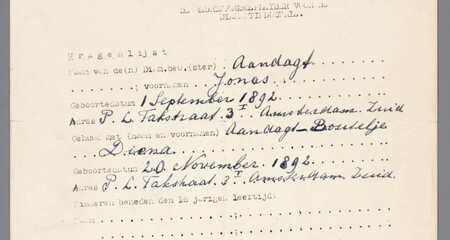 V r a g e n l i j s t
Naam van de(n) Diam.bew.(ster) Aandagt
; voornamen Jonas
Geboortedatum 1 September 1892
Adres P. L. Takstraat 3 I Amsterdam Zuid
Gehuwd met (naam en voornamen) Aandagt-Boutelje
Diena
Geboortedatum 20 November 1892
Adres P. L. Takstraat 3 I Amsterdam Zuid.
Kinderen beneden den 16 jarigen leeftijd:
Naam